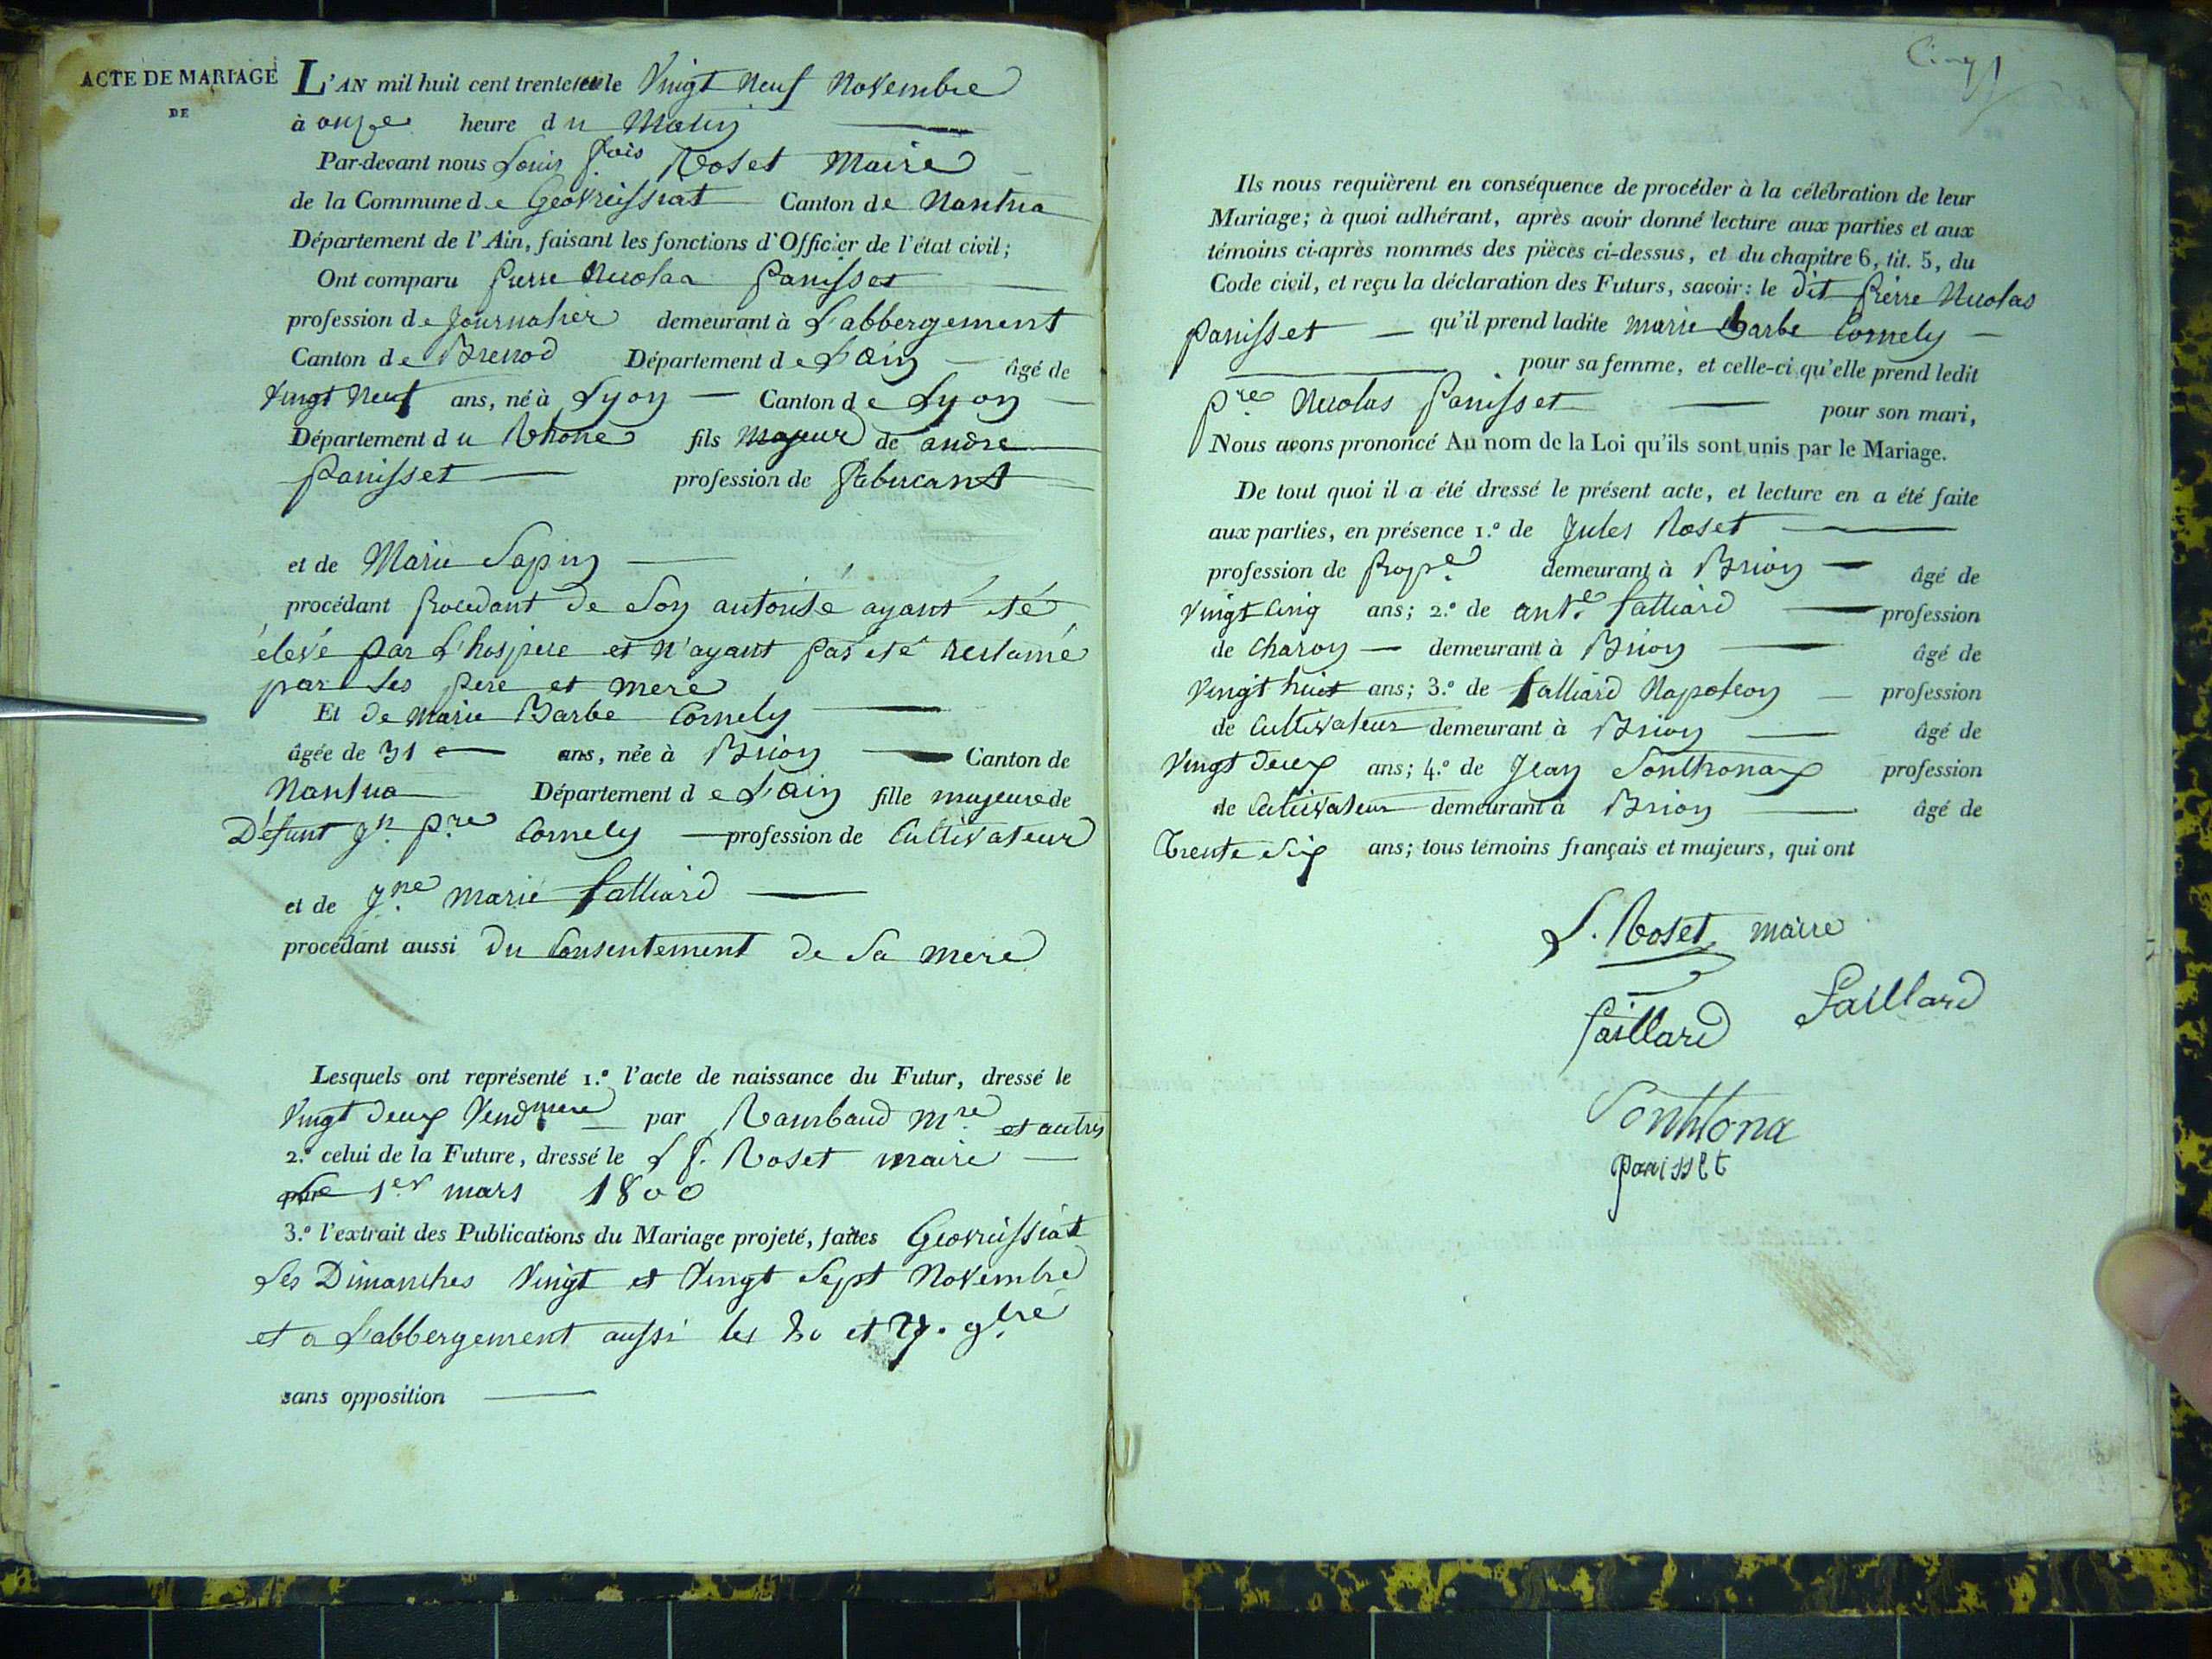 ACTE DE MARIAGE
DE
L'AN mil huit cent trente le Vingt Neuf Novembre
à onze heure du Matin
Par-devant nous Louis fois Roset Maire
de la Commune de Geovreissiat Canton de Nantua
Département de l'Ain, faisant les fonctions d'Officier de l'état civil;
Ont comparu Pierre Nicolas Panisset
profession de Journalier demeurant à L'abbergement
Canton de Brenod Département de L'Ain âgé de
Vingt Neuf ans, né à Lyon Canton de Lyon
Département du Rhone fils Majeur de andré
Panisset profession de fabricant
et de Marie Sapin
procédant Procedant de Son autorité ayant été
élevé par L'hospice et N'ayant pas été reclamé
par Ses Pere et mere
Et de Marie Barbe Cornely
âgée de 31 ans, née à Brion Canton de
Nantua Département de L'Ain fille majeure de
Défunt Jn. Pre Cornely profession de Cultivateur
et de Jne Marie falliard
procédant aussi Du Consentement de Sa mere
Lesquels ont représenté 1.º l'acte de naissance du Futur, dressé le
Vingt deux Vendmere par Rambaud Mre et autres
2.º celui de la Future, dressé le L f. Roset maire
par Le 1er mars 1800
3.º l'extrait des Publications du Mariage projeté, faites Geovreissiat
Les Dimanches Vingt et Vingt Sept Novembre
et a L'abbergement aussi les 20 et 27. 9bre
sans opposition
Cinq
Ils nous requièrent en conséquence de procéder à la célébration de leur
Mariage; à quoi adhérant, après avoir donné lecture aux parties et aux
témoins ci-après nommés des pièces ci-dessus, et du chapitre 6, tit. 5, du
Code civil, et reçu la déclaration des Futurs, savoir: le dit Pierre Nicolas
Panisset qu'il prend ladite marie Barbe Cornely
pour sa femme, et celle-ci qu'elle prend ledit
Pre Nicolas Panisset pour son mari,
Nous avons prononcé Au nom de la Loi qu'ils sont unis par le Mariage.
De tout quoi il a été dressé le présent acte, et lecture en a été faite
aux parties, en présence 1.º de Jules Roset
profession de Propre demeurant à Brion âgé de
Vingt Cinq ans; 2.º de ante falliard profession
de Charon demeurant à Brion âgé de
Vingt huit ans; 3.º de falliard Napoleon profession
de Cultivateur demeurant à Brion âgé de
Vingt deux ans; 4.º de Jean Sonthonax profession
de Cultivateur demeurant à Brion âgé de
Trente Six ans; tous témoins français et majeurs, qui ont
L. Roset maire
faillard Faillard
Sonthona
panisset